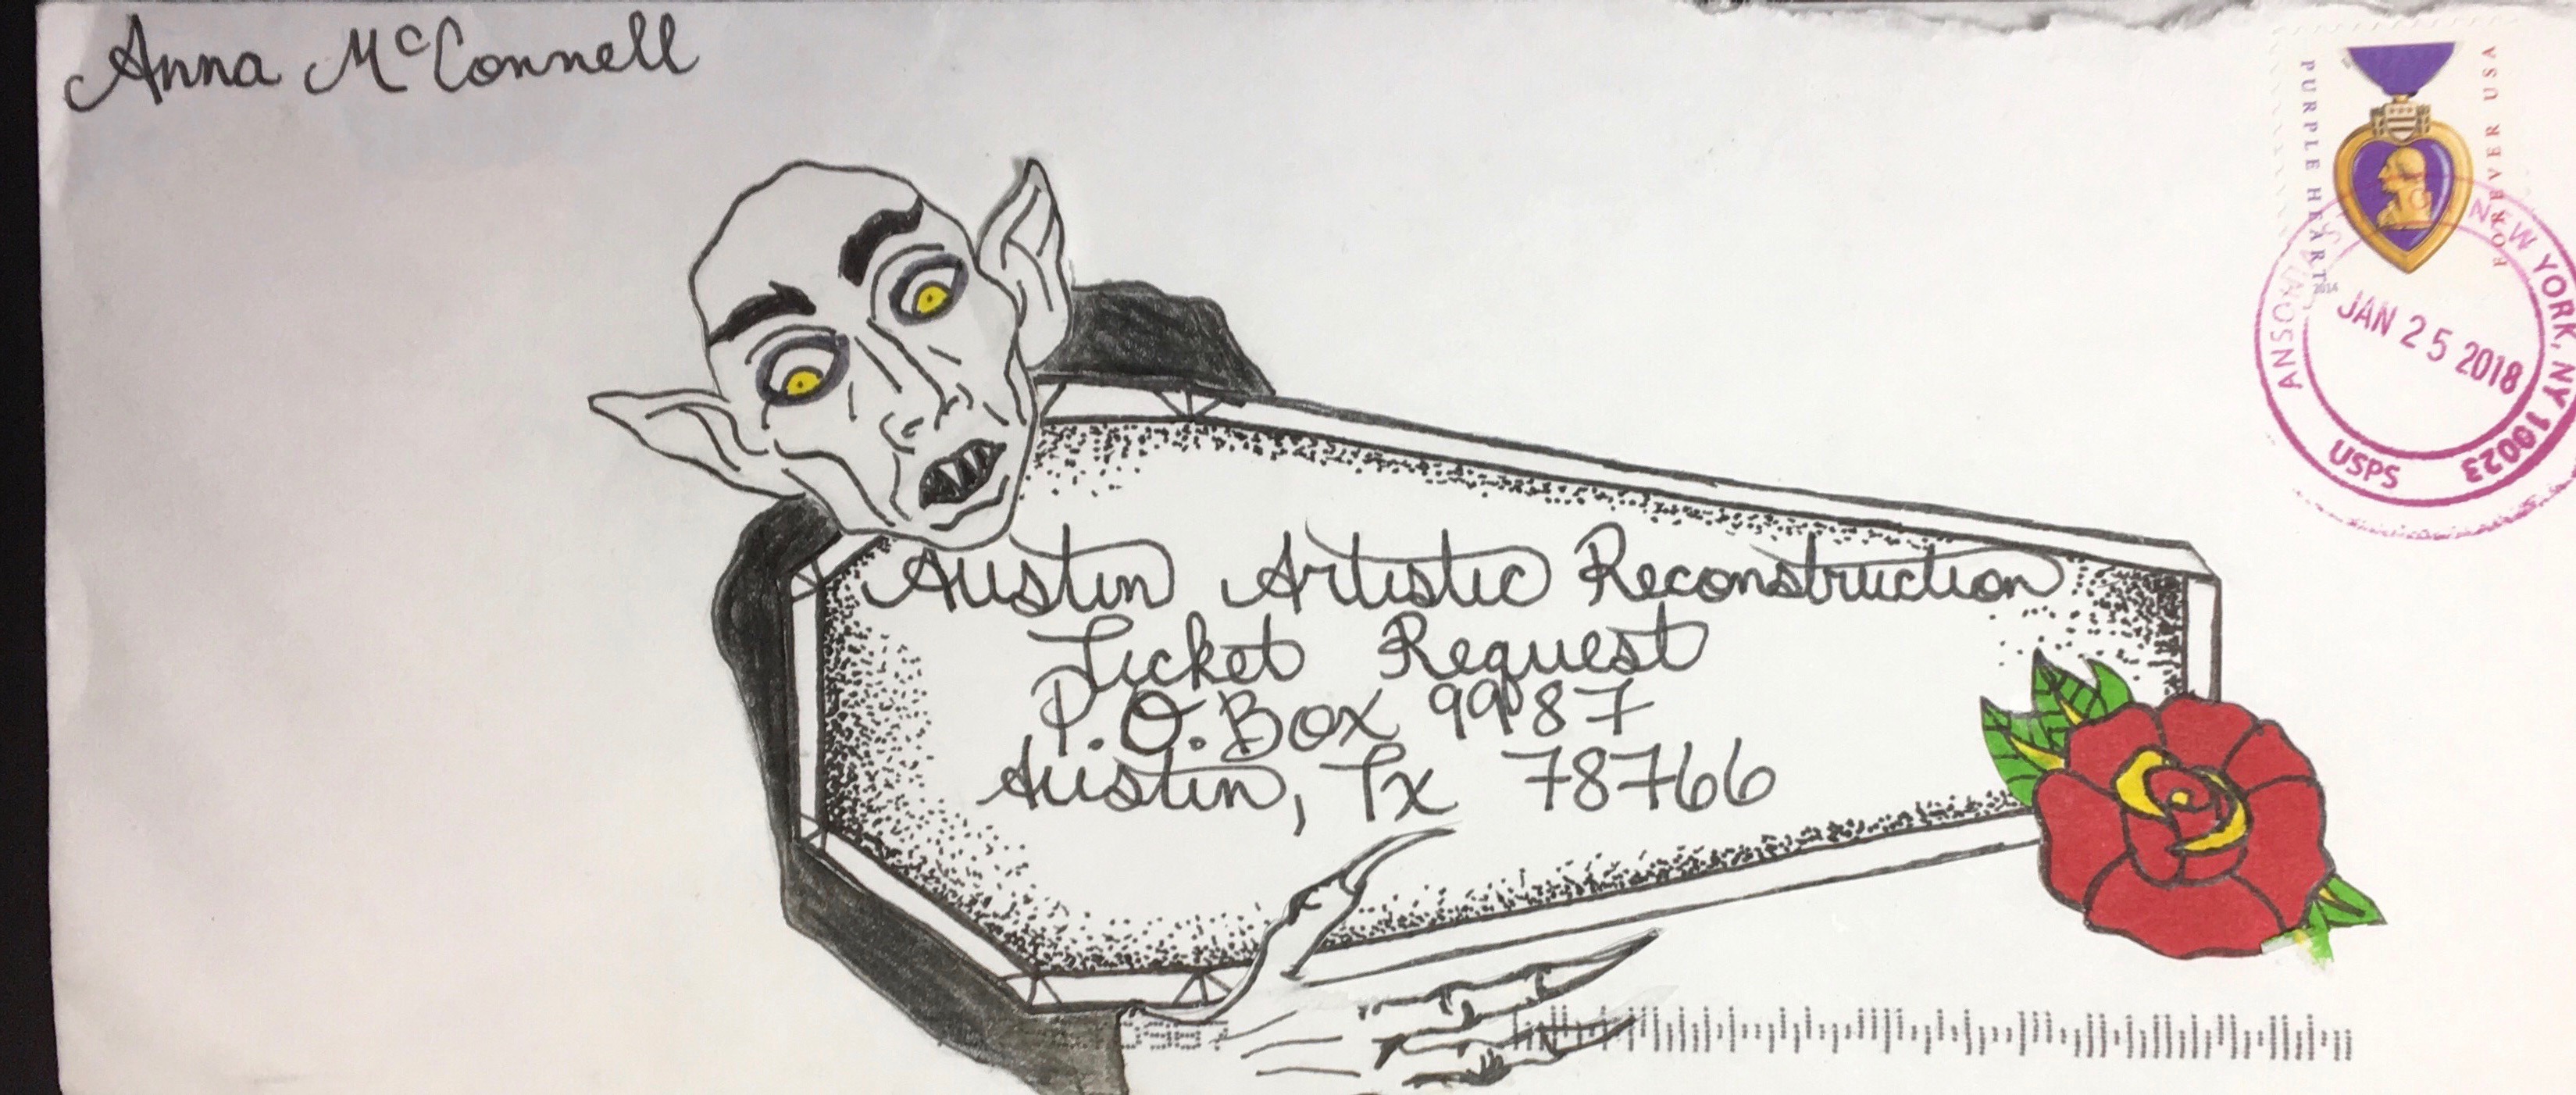 Anna McConnell
PURPLE HEART
FOREVER USA
2014
ANSONIA
NEW YORK, NY 10023
JAN 25 2018
USPS
Austin Artistic Reconstruction
Ticket Request
P.O. Box 9987
Austin, Tx 78766